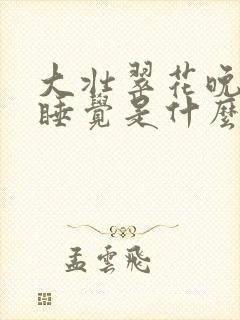 大壮翠花晚
睡覺是什麼
孟雲飛